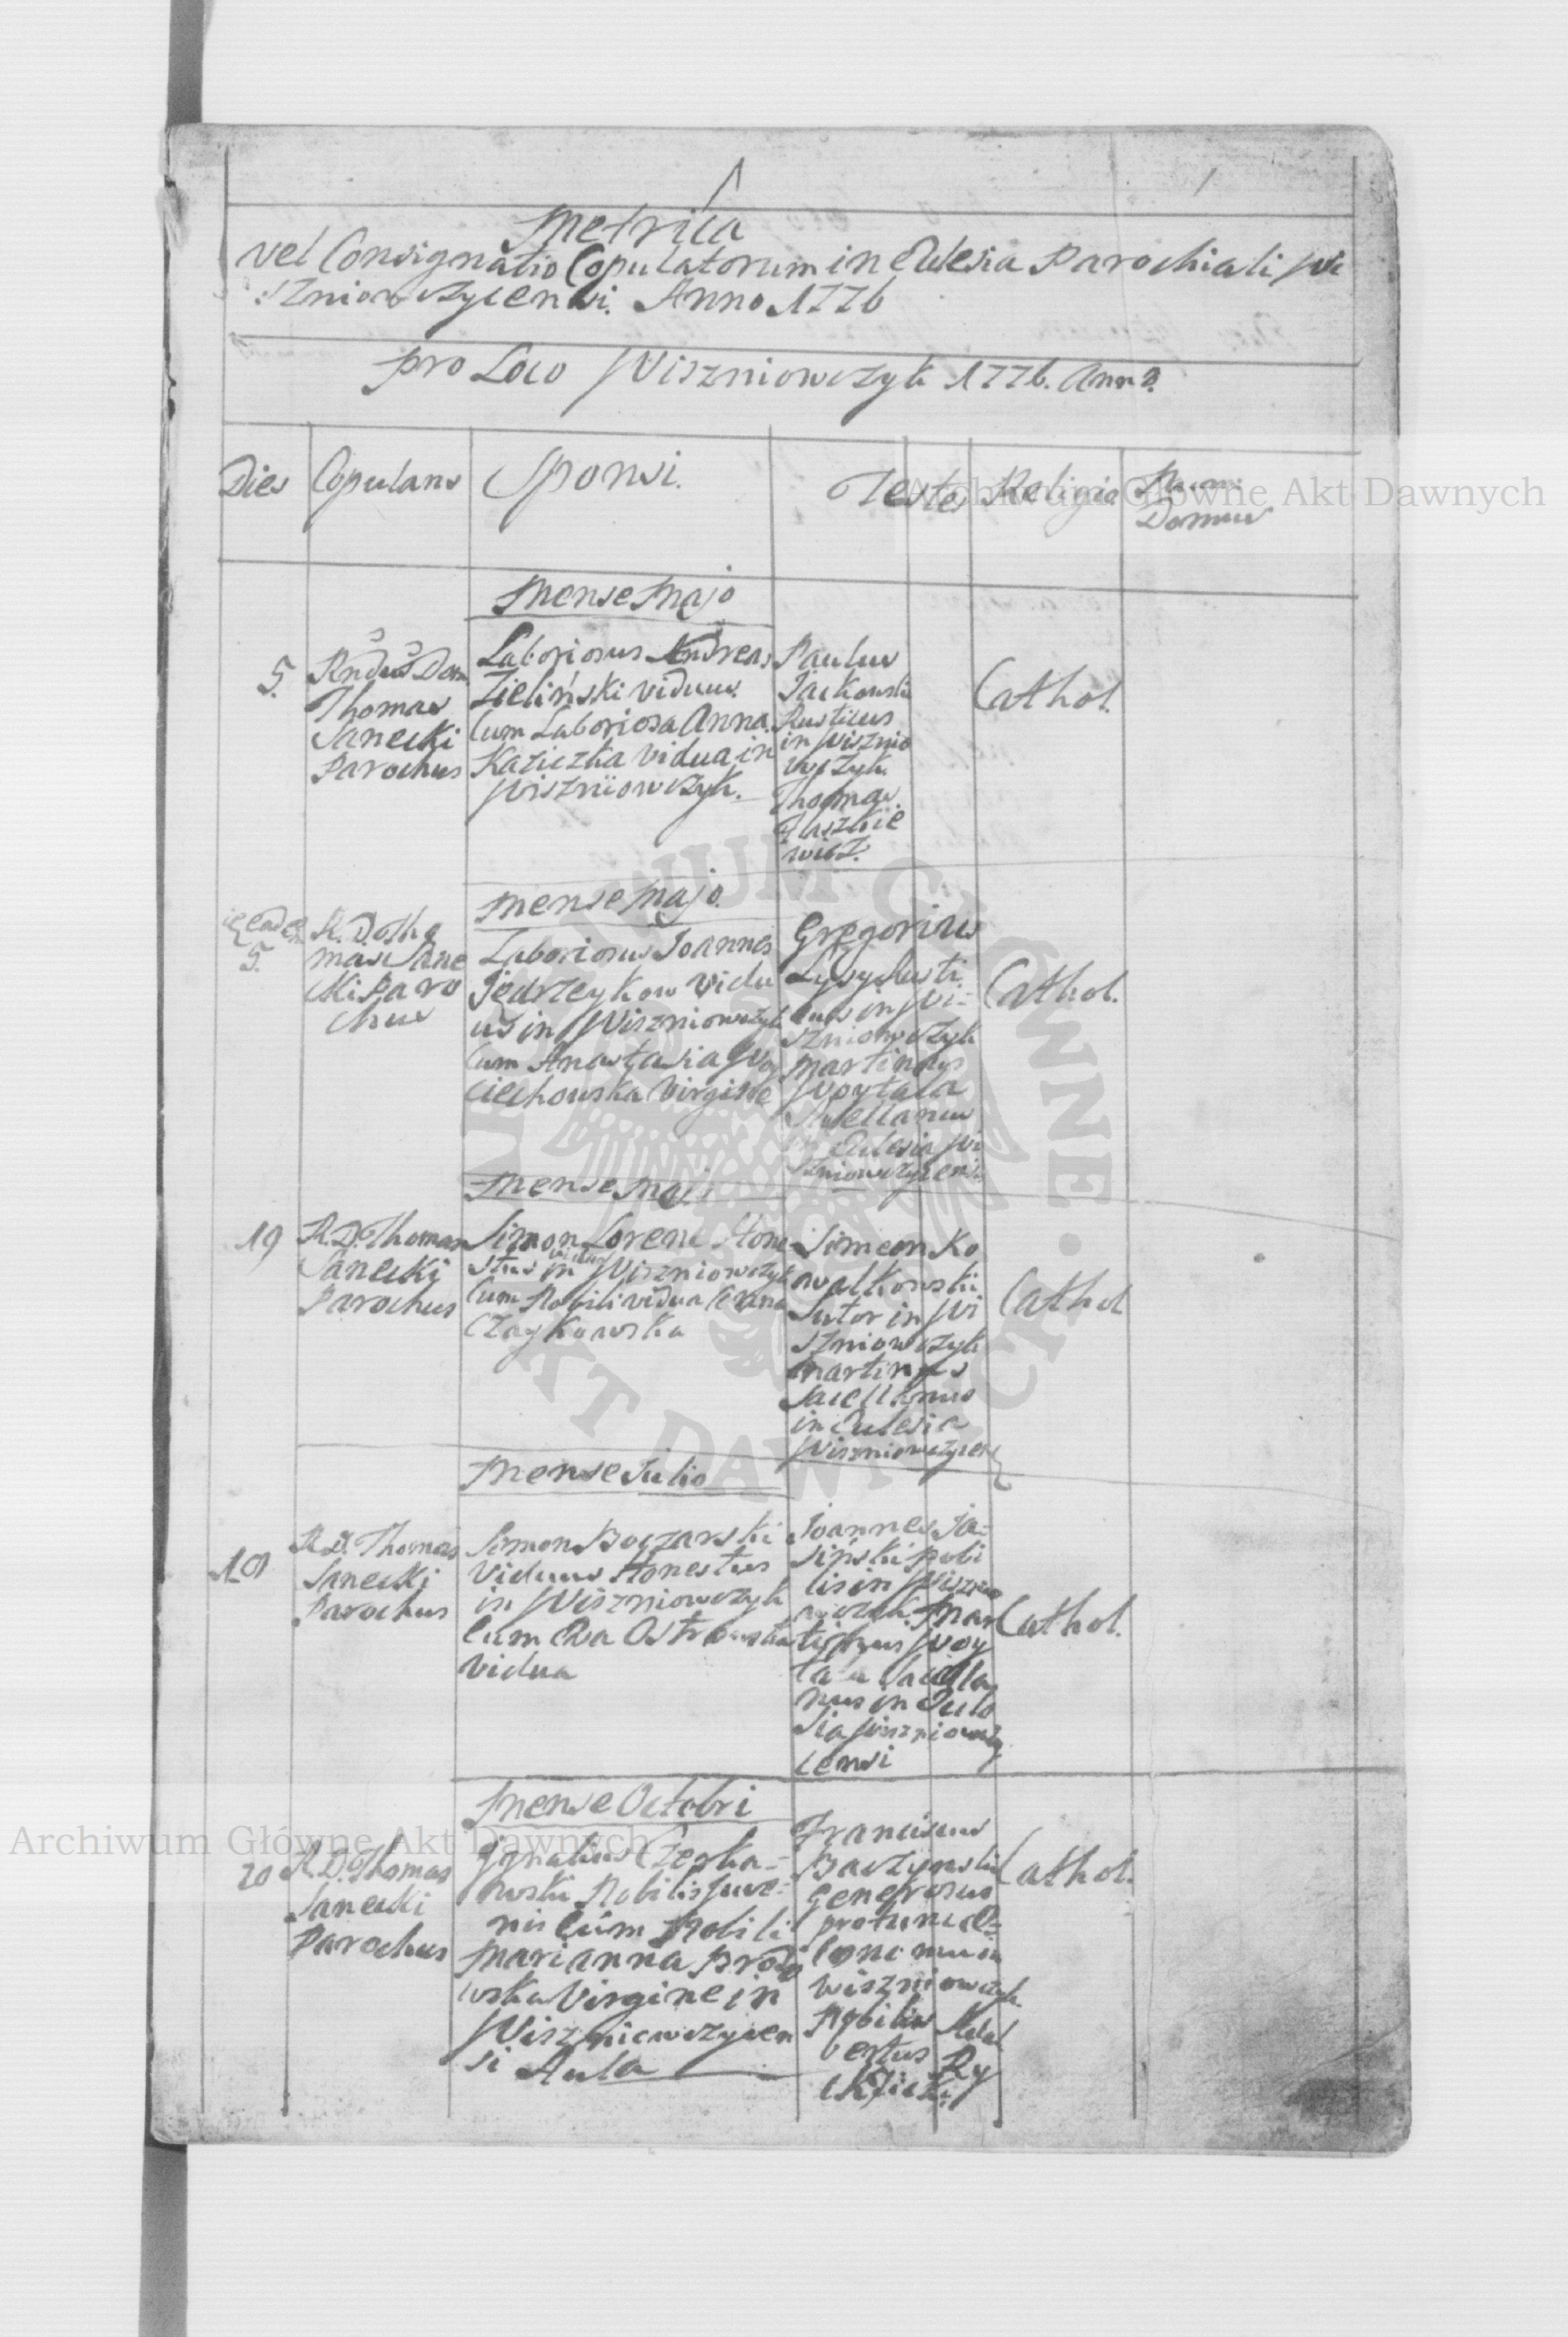 1
1
Metrica
vel Consignatio Copulatorum in Eclesia Parochiali Wi
szniowczycensi. Anno 1776
pro Loco Wiszniowczyk 1776. Anno.
Dies
Copulans
Sponsi.
Testes
Religio
Num:
Domus
Mense Majo
5.
Rndus Dom
Thomas
Sanecki
Parochus
Laboriosus Andreas
Zieliński viduus.
Cum Laboriosa Anna
Kaziczka vidua in
Wiszniowczyk.
Paulus
Jackowski
Rusticus
in Wisznio
wczyk.
Thomas
Flaszkie
wicz.
Cathol.
Mense Majo.
eadem
5.
R. D. Tho
mas Sane
cki Paro
chus
Laboriosus Joannes
Jędrzeykow vidu
us in Wiszniowczyk
Cum Anastasia Woy
ciechowska Virgine
Gregorius
Łysy Rusti
cus in Wi:
szniowczyk
Martinus
Woytala
Sacellanus
in Eclesia Wi
szniowczycensi
Cathol.
Mense Maji
19
R. D. Thomas
Sanecki
Parochus
Simon Lorenc Hone
stus viduus in Wiszniowczyk
Cum Nobili vidua Anna
Czaykowska
Simeon Ko
walkowski
Sutor in Wi
szniowczyk
Martinus
Sacellanus
in Eclesia
Wiszniowczycen
Cathol
Mense Julio
R. D. Thomas
Sanecki
Parochus
Simon Boczarski
Viduus Honestus
in Wiszniowczyk
Cum Eva Ostrowska
vidua
Joannes Ja=
siński Nobi
lis in Wisznio
wczyk. Mar
tinus Woy
tala Sacella
nus in Ecle
sia Wiszniowczy
censi
Cathol.
Mense Octobri
20
R. D. Thomas
Sanecki
Parochus
Ignatius Czerka=
wski Nobilis Juve=
nis cum Nobili
Marianna Brodo
wska Virgine in
Wiszniowczycen
si Aula
Franciscus
Baczynski
Generosus
pro tunc Œ=
conomus in
Wiszniowczyk
Nobilis Adal
bertus Ry
Cathol.
Archiwum Główne Akt Dawnych
Archiwum Główne Akt Dawnych
ARCHIWUM GŁÓWNE • AKT DAWNYCH